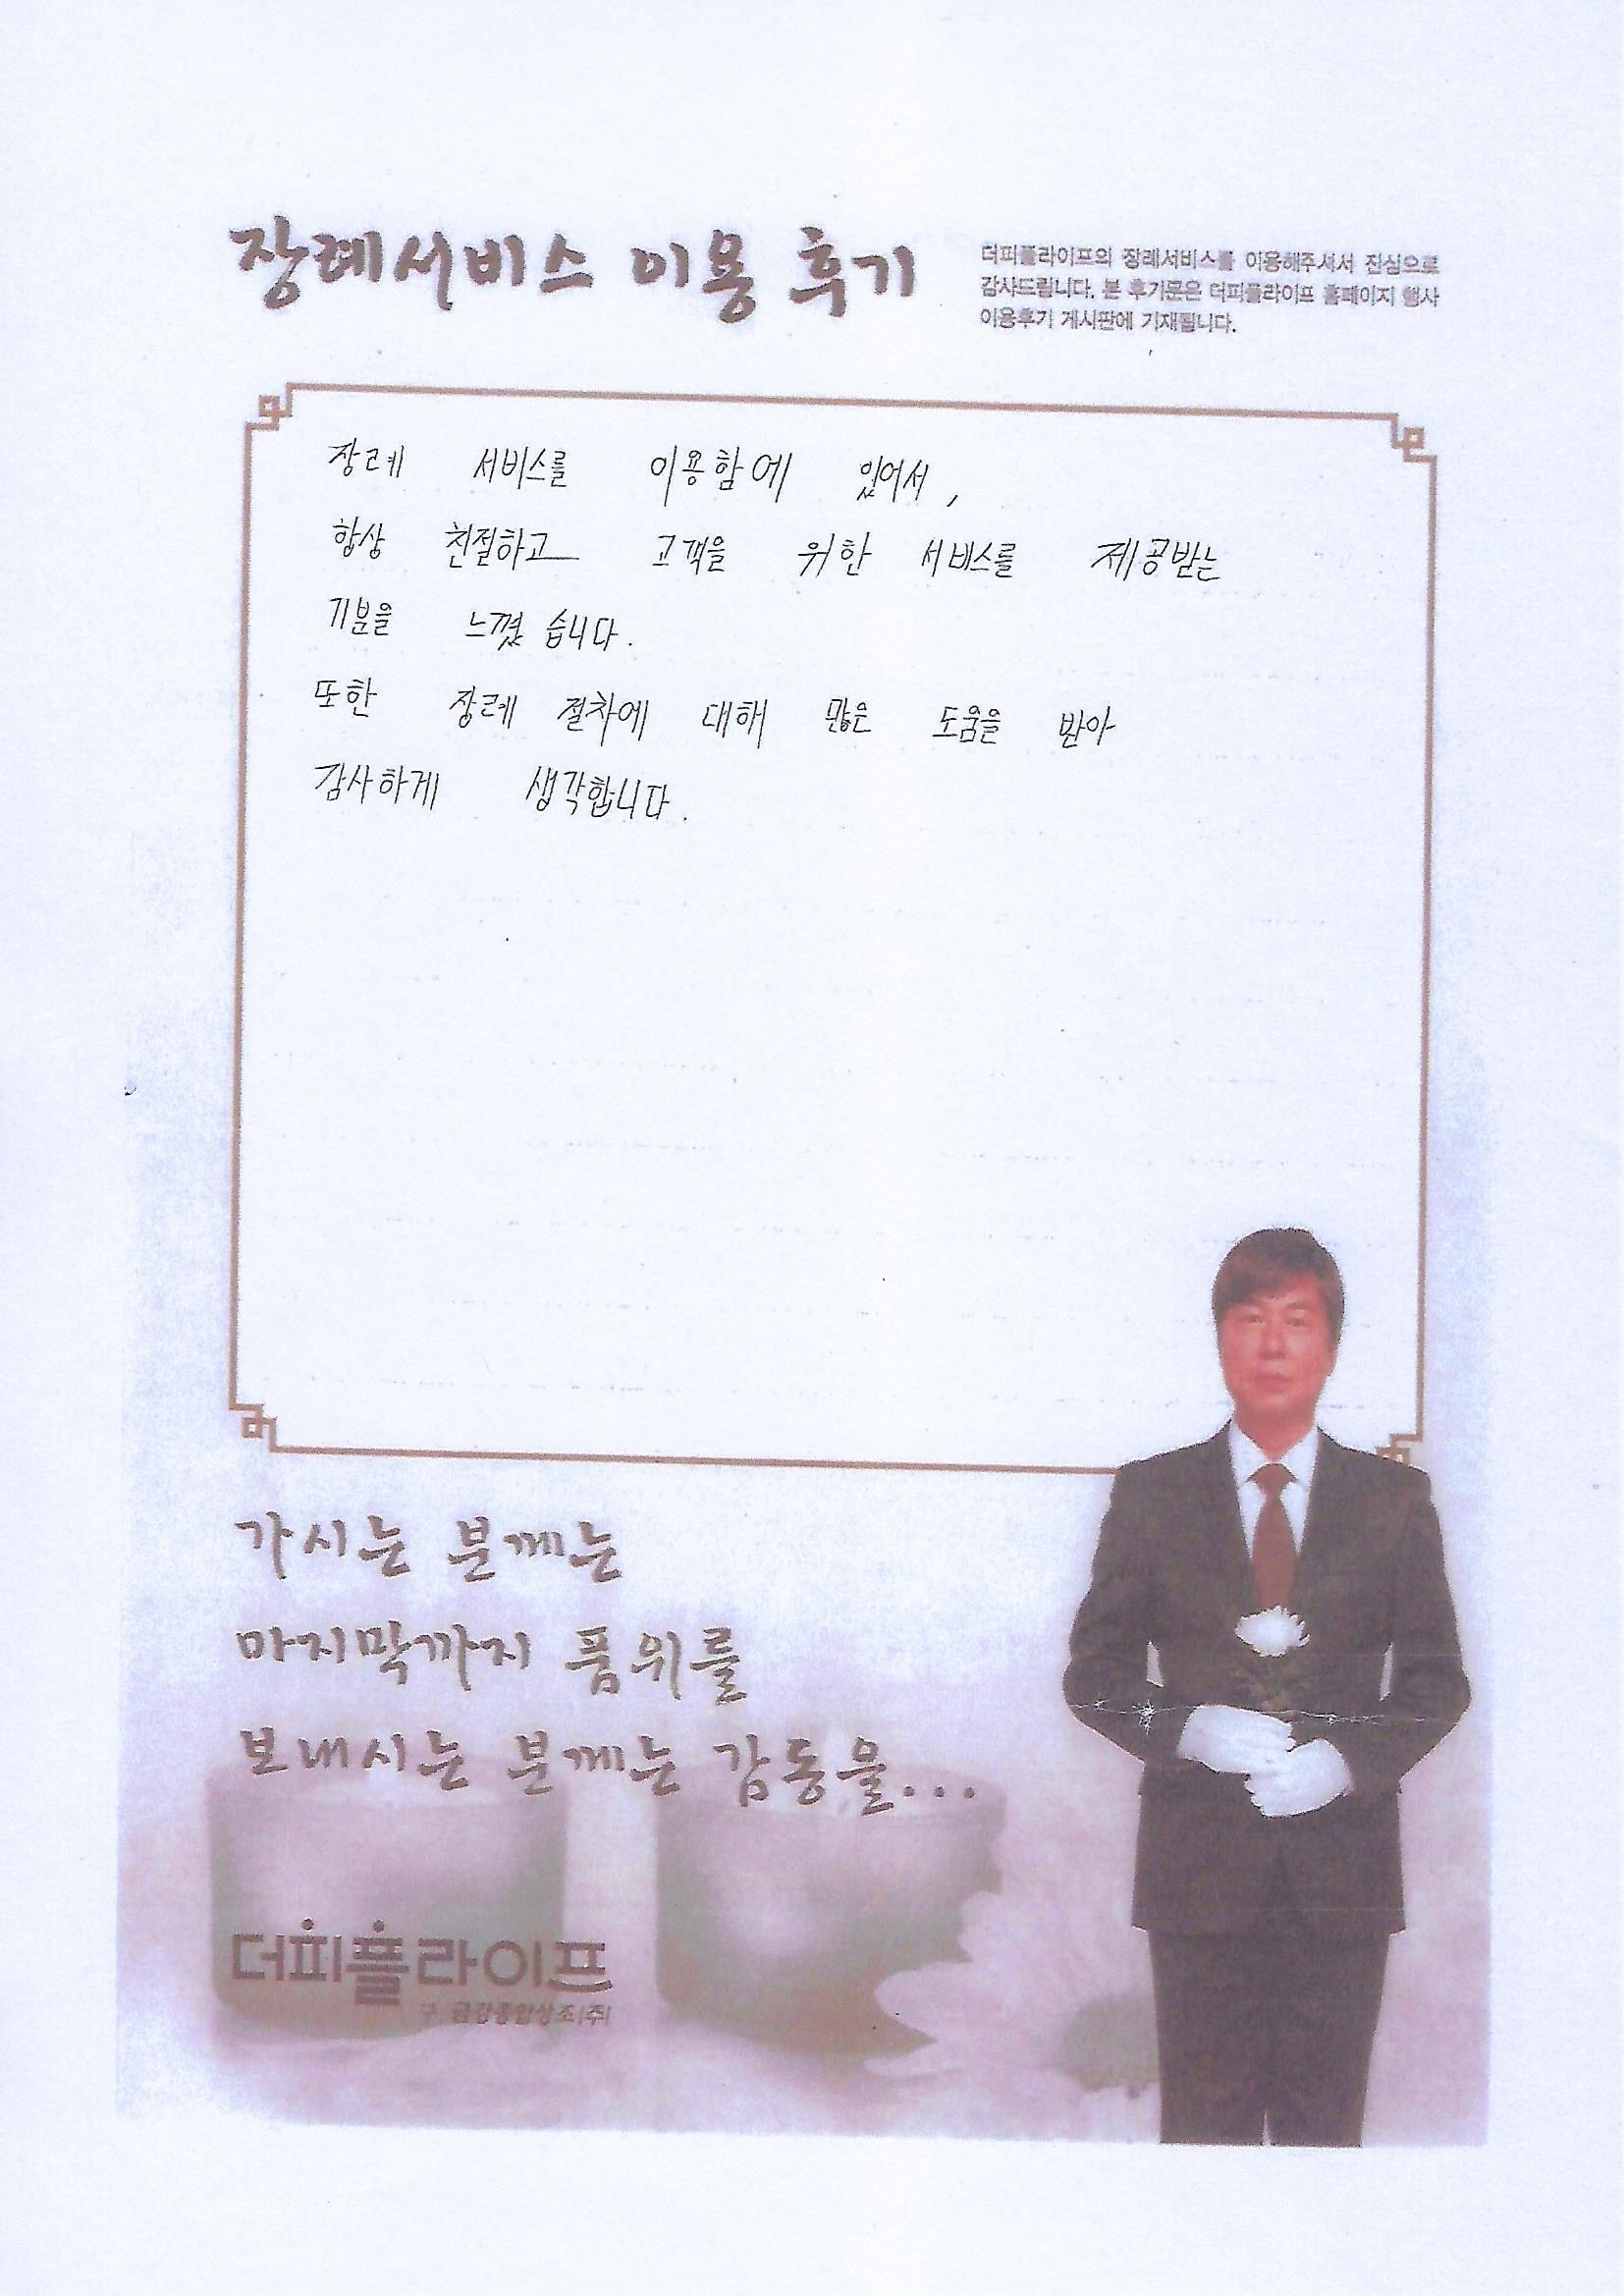 장례서비스 이용 후기
더피플라이프의 장례서비스를 이용해주셔서 진심으로
감사드립니다. 본 후기문은 더피플라이프 홈페이지 행사
이용후기 게시판에 기재됩니다.
장례 서비스를 이용함에 있어서,
항상 친절하고 고객을 위한 서비스를 제공받는
기분을 느꼈습니다.
또한 장례 절차에 대해 많은 도움을 받아
감사하게 생각합니다.
가시는 분께는
마지막까지 품위를
보내시는 분께는 감동을...
더피플라이프
구 금강종합상조(주)